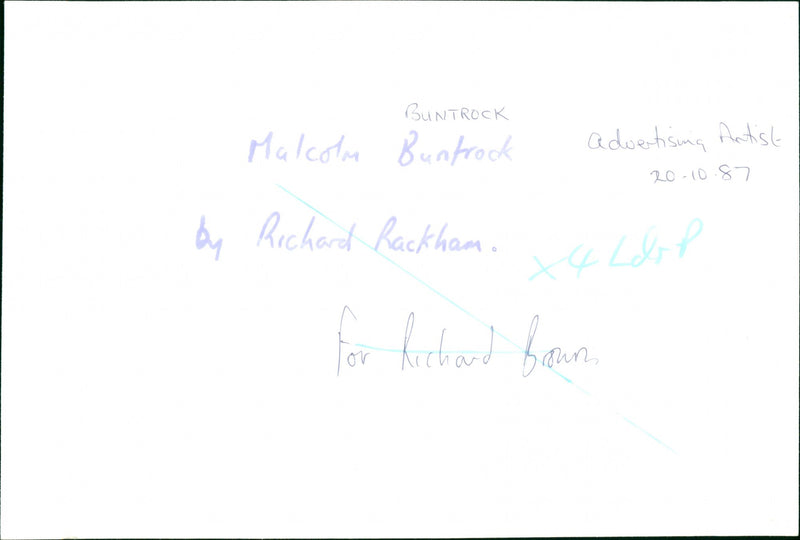 BUNTROCK
Malcolm Buntrock
Advertising Artist
20.10.87
by Richard Rackham.
x4
For Richard Brown